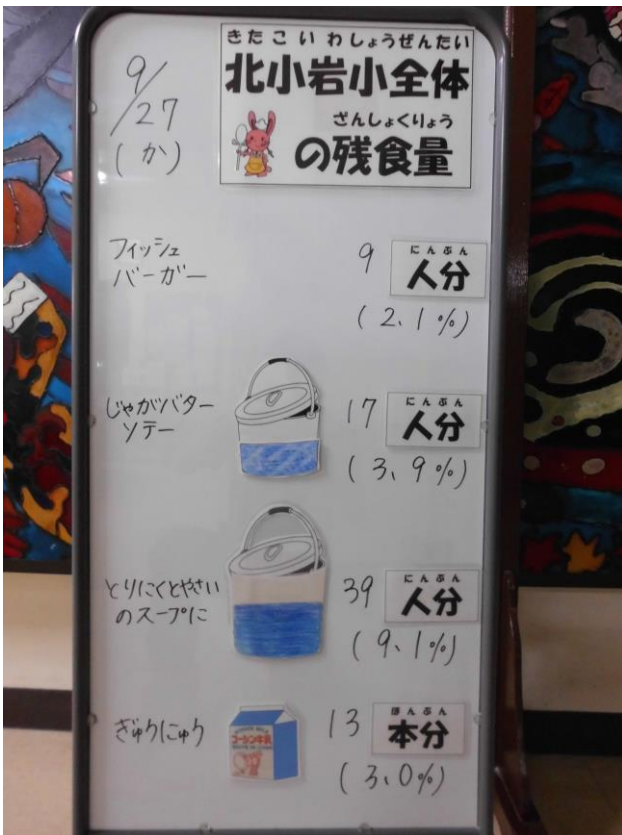 きたこいわしょうぜんたい
北小岩小全体
ざんしょくりょう
の残食量
9/27
(か)
フィッシュ
バーガー
9
にんぶん
人分
(2.1%)
じゃがバター
ソテー
17
にんぶん
人分
(3.9%)
とりにくとやさい
のスープに
39
にんぶん
人分
(9.1%)
ぎゅうにゅう
13
ほんぶん
本分
(3.0%)
コーシン牛乳